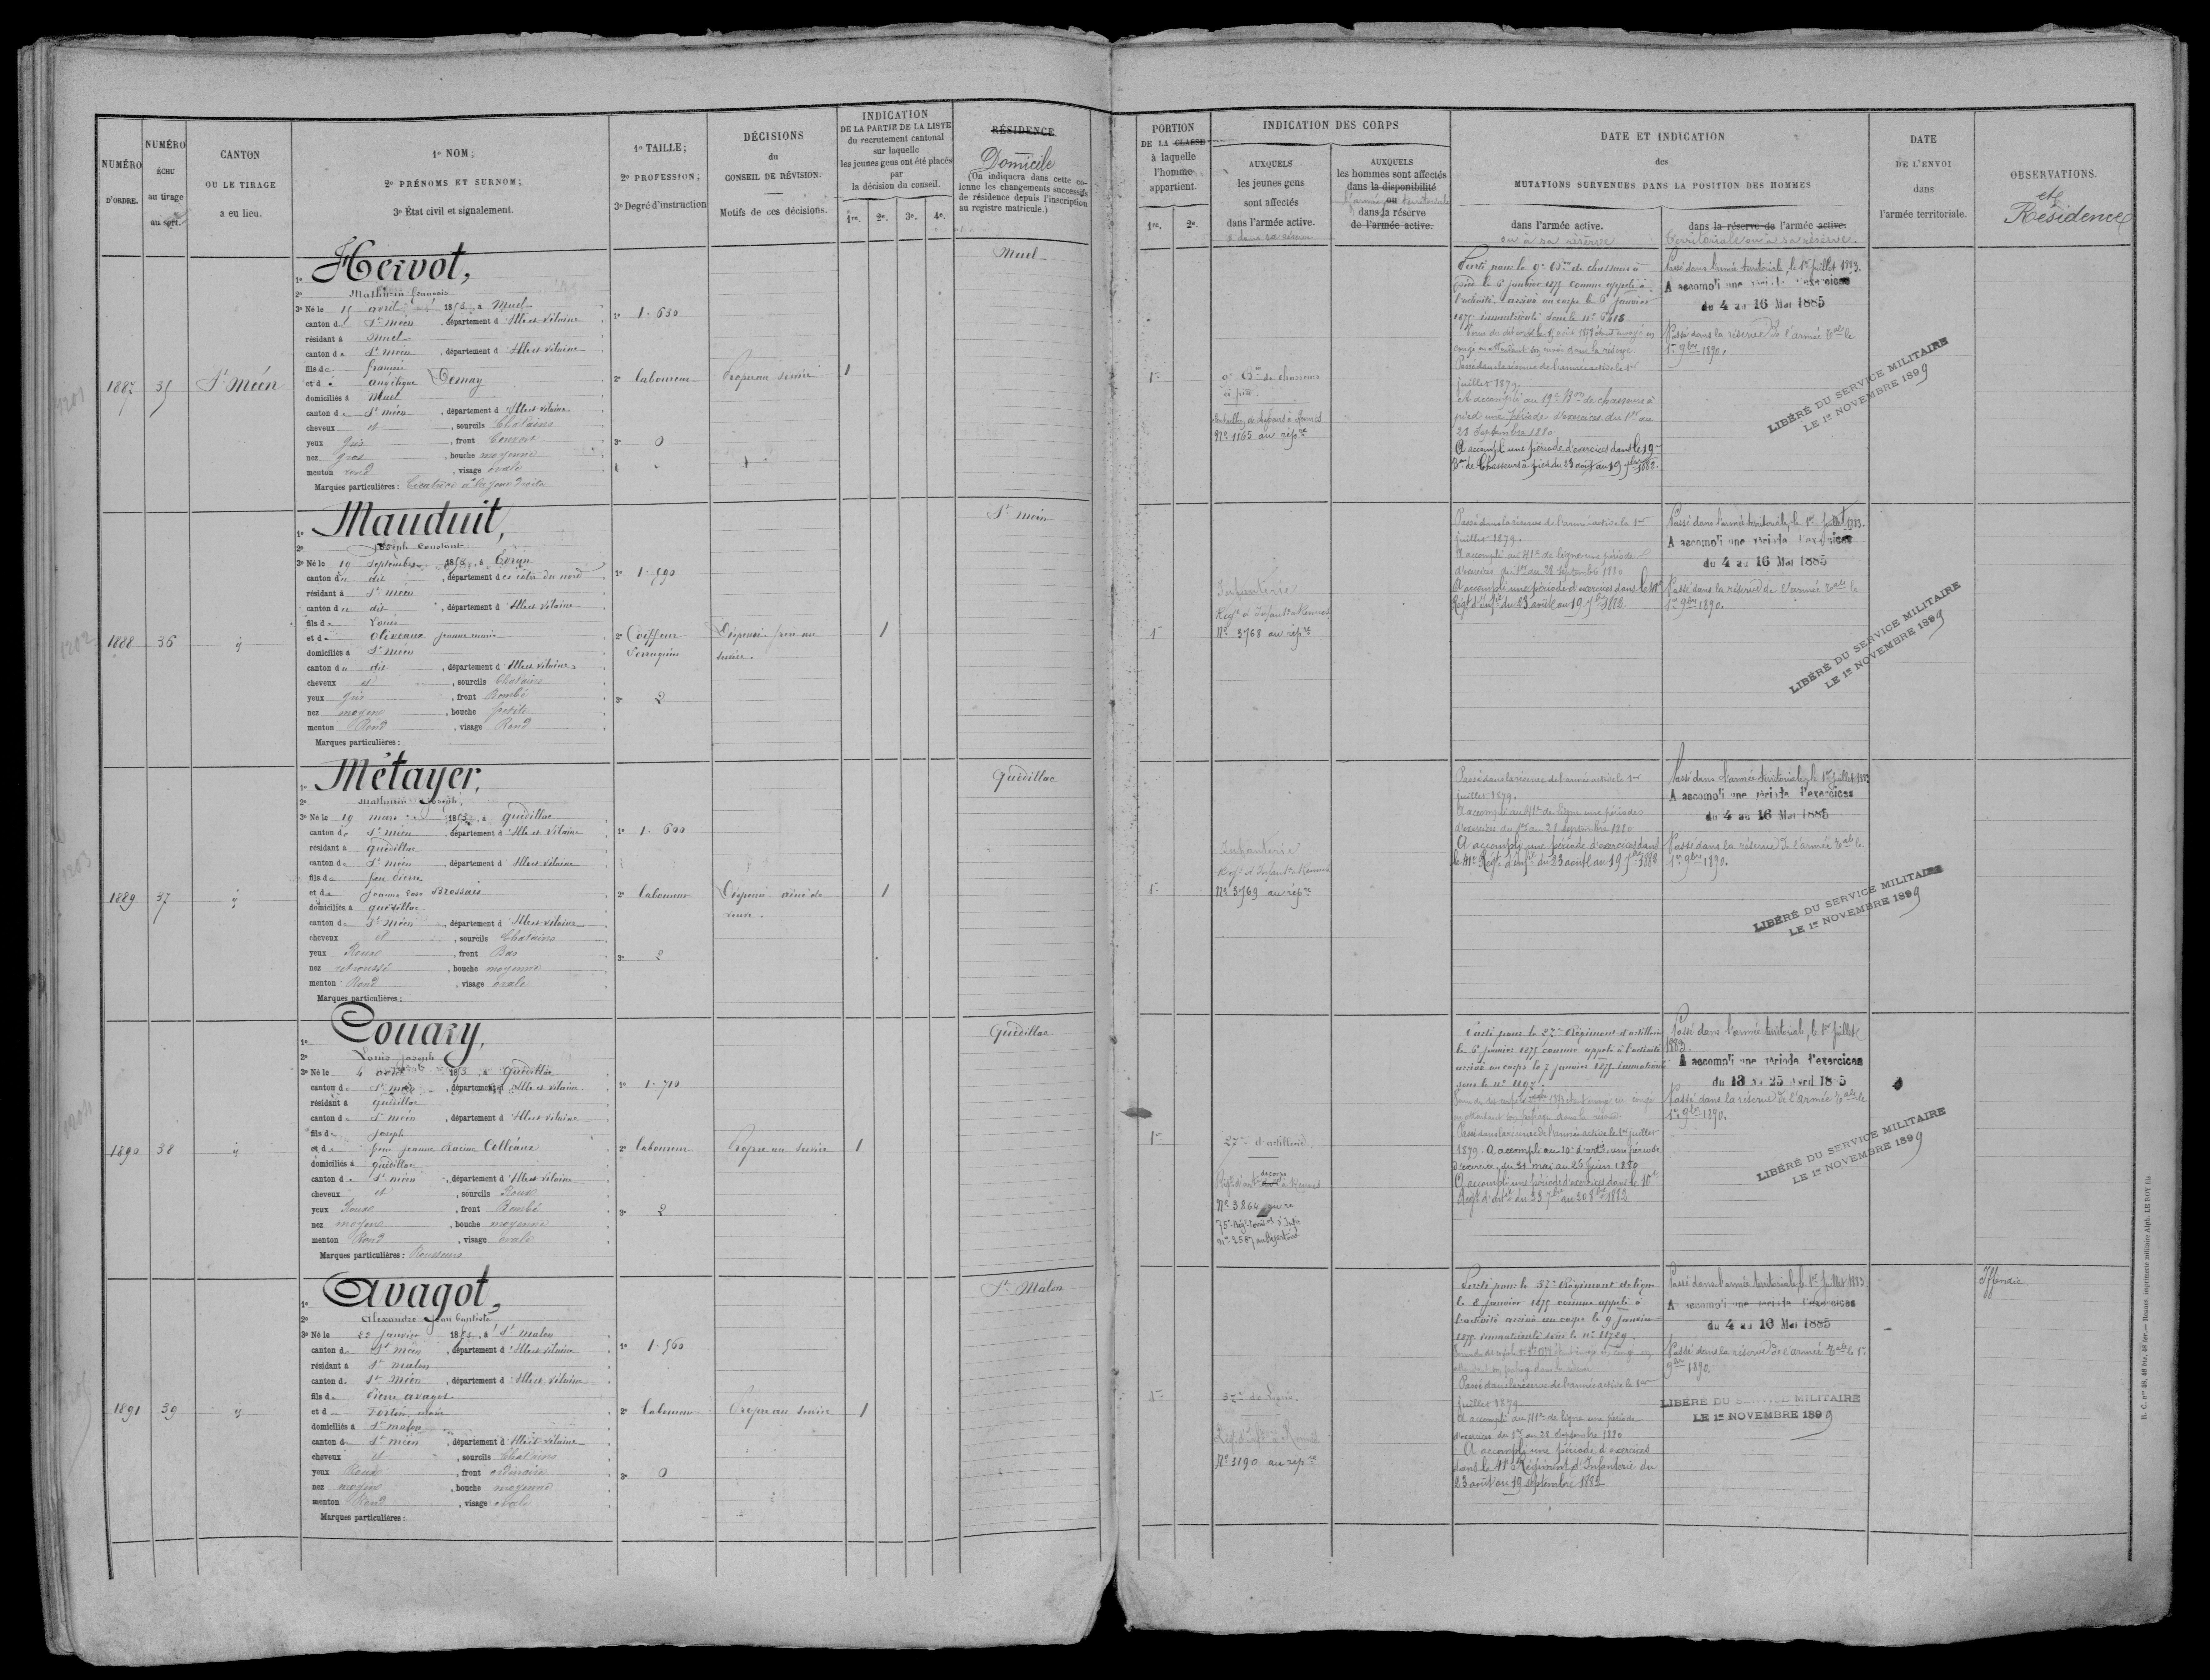 NUMÉRO
D'ORDRE.
NUMÉRO
ÉCHU
au tirage
au sort.
CANTON
OU LE TIRAGE
a eu lieu.
1º NOM;
2º PRÉNOMS ET SURNOM;
3º État civil et signalement.
1º TAILLE;
2º PROFESSION;
3º Degré d'instruction
DÉCISIONS
du
CONSEIL DE RÉVISION.
Motifs de ces décisions.
INDICATION
DE LA PARTIE DE LA LISTE
du recrutement cantonal
sur laquelle
les jeunes gens ont été placés
par
la décision du conseil.
1re. 2e. 3e. 4e.
RÉSIDENCE
Domicile
(On indiquera dans cette co-
lonne les changements successifs
de résidence depuis l'inscription
au registre matricule.)
PORTION
DE LA CLASSE
à laquelle
l'homme
appartient.
1re. 2e.
INDICATION DES CORPS
AUXQUELS
les jeunes gens
sont affectés
dans l'armée active.
AUXQUELS
les hommes sont affectés
dans la disponibilité
ou
l'armée territoriale
dans la réserve
de l'armée active.
DATE ET INDICATION
des
MUTATIONS SURVENUES DANS LA POSITION DES HOMMES
dans l'armée active.
ou à sa réserve
dans la réserve de l'armée active.
territoriale ou à sa réserve.
DATE
DE L'ENVOI
dans
l'armée territoriale.
OBSERVATIONS.
et
Résidence
1887 35 St Méen
1º Hervot,
2º Mathurin François
3º Né le 15 avril 1853, à Muel
canton de St méen, département d'Ille et Vilaine
résidant à Muel
canton de St méen, département d'Ille et Vilaine
fils de françois
et de angélique Demay
domiciliés à Muel
canton de St méen, département d'Ille et Vilaine
cheveux et, sourcils Chatains
yeux gris, front Couvert
nez gros, bouche moyenne
menton rond, visage ovale
Marques particulières: Cicatrice à la joue droite
1º 1.630
2º laboureur
3º 0
Propre au service
1
Muel
1re
9e Bon de chasseurs
à pied
Nº 1165 au répre
Parti pour le 9e Bon de chasseurs à
pied le 6 janvier 1875 comme appelé à
l'activité, arrivé au corps le 6 janvier
1875 immatriculé sous le nº
congé en attendant son passage dans la réserve.
Passé dans la réserve de l'armée active le 1er
juillet 1879.
A accompli au 19e Bon de chasseurs à
pied une période d'exercices du 1er au
28 Septembre 1880
A accompli une période d'exercices dans le 19e
Bon de Chasseurs à pied du 23 août au 19 7bre 1882.
Passé dans l'armée territoriale, le 1er juillet 1883.
A accompli une période d'exercices
du 4 au 16 Mai 1885
Passé dans la réserve de l'armée tale le
1er 9bre 1890.
LIBÉRÉ DU SERVICE MILITAIRE
LE 1er NOVEMBRE 1899
1202
1888 36 ij
1º Mauduit,
2º Joseph Constant
3º Né le 19 septembre 1853, à Evran
canton du dit, département des côtes du nord
résidant à St méen
canton du dit, département d'Ille et Vilaine
fils de Louis
et de Oliveaux jeanne marie
domiciliés à St méen
canton du dit, département d'Ille et Vilaine
cheveux et, sourcils Chatains
yeux gris, front Bombé
nez moyen, bouche petite
menton Rond, visage Rond
Marques particulières:
1º 1.590
2º Coiffeur
Perruquier
3º 2
Dispensé frère au
service.
1
St méen
1re
Infanterie
Regt d'Infantie Rennes
Nº 3768 au répre
Passé dans la réserve de l'armée active le 1er
juillet 1879.
A accompli au 41e de ligne une période
d'exercices du 1er au 28 septembre 1880
A accompli une période d'exercices dans le 41e
Regt d'Infie du 23 août au 19 7bre 1882.
Passé dans l'armée territoriale, le 1er juillet 1883.
A accompli une période d'exercices
du 4 au 16 Mai 1885
Passé dans la réserve de l'armée tale le
1er 9bre 1890.
LIBÉRÉ DU SERVICE MILITAIRE
LE 1er NOVEMBRE 1899
1203
1889 37 ij
1º Métayer,
2º Mathurin Joseph,
3º Né le 19 mars 1853, à Quédillac
canton de St méen, département d'Ille et Vilaine
résidant à quédillac
canton de St méen, département d'Ille et Vilaine
fils de feu Pierre
et de Jeanne Rose Brossais
domiciliés à quédillac
canton de St méen, département d'Ille et Vilaine
cheveux et, sourcils Chatains
yeux Roux, front Bas
nez retroussé, bouche moyenne
menton Rond, visage ovale
Marques particulières:
1º 1.600
2º laboureur
3º 2
Dispensé aîné de
veuve.
1
Quédillac
1re
Infanterie
Regt d'Infantie Rennes
Nº 3769 au répre
Passé dans la réserve de l'armée active le 1er
juillet 1879.
A accompli au 41e de ligne une période
d'exercices du 1er au 28 septembre 1880
A accompli une période d'exercices dans
le 41e Regt d'Infie du 23 août au 19 7bre 1882
Passé dans l'armée territoriale, le 1er juillet 1883
A accompli une période d'exercices
du 4 au 16 Mai 1885
Passé dans la réserve de l'armée tale le
1er 9bre 1890.
LIBÉRÉ DU SERVICE MILITAIRE
LE 1er NOVEMBRE 1899
1204
1890 38 ij
1º Couary,
2º Louis Joseph
3º Né le 4 août 1853, à Quédillac
canton de St méen, département d'Ille et Vilaine
résidant à quédillac
canton de St méen, département d'Ille et Vilaine
fils de Joseph
et de feue jeanne Racine Colléaux
domiciliés à quédillac
canton de St méen, département d'Ille et Vilaine
cheveux et, sourcils Roux
yeux Roux, front Bombé
nez moyen, bouche moyenne
menton Rond, visage ovale
Marques particulières: Rousseurs
1º 1.710
2º laboureur
3º 2
Propre au service
1
Quédillac
1re
27e d'artillerie
Nº 3864 au re
Nº 2587 au Répertoire
Parti pour le 27e Régiment d'artillerie
le 6 janvier 1875 comme appelé à l'activité
arrivé au corps le 7 janvier 1875 immatriculé
sous le nº 1197.
en attendant son passage dans la réserve
Passé dans la réserve de l'armée active le 1er juillet
1879. A accompli au 10e d'artie une période
d'exercice, du 31 mai au 26 juin 1880
A accompli une période d'exercices dans le 10e
Regt d'artie du 23 7bre au 20 8bre 1882
Passé dans l'armée territoriale, le 1er Juillet
1883.
A accompli une période d'exercices
du 13 au 25 Avril 1885
Passé dans la réserve de l'armée tale le
1er 9bre 1890.
LIBÉRÉ DU SERVICE MILITAIRE
LE 1er NOVEMBRE 1899
1891 39 ij
1º Avagot,
2º Alexandre Jean Baptiste
3º Né le 22 janvier 1853, à St malon
canton de St méen, département d'Ille et Vilaine
résidant à St malon
canton de St Méen, département d'Ille et Vilaine
fils de Pierre avagot
et de Fortin marie
domiciliés à St malon
canton de St méen, département d'Ille et Vilaine
cheveux et, sourcils Chatains
yeux Roux, front ordinaire
nez moyen, bouche moyenne
menton Rond, visage ovale
Marques particulières:
1º 1.560
2º laboureur
3º 0
Propre au service
1
St Malon
1re
37e de Ligne
Nº 3190 au répre
Parti pour le 37e Régiment de ligne
le 8 janvier 1875 comme appelé à
l'activité arrivé au corps le 9 janvier
1875 immatriculé sous le nº 11729.
Passé dans la réserve de l'armée active le 1er
juillet 1879.
A accompli au 41e de ligne une période
d'exercices du 1er au 28 Septembre 1880
A accompli une période d'exercices
dans le 41e Régiment d'Infanterie du
23 août au 19 septembre 1882
Passé dans l'armée territoriale, le 1er Juillet 1883
A accompli une période d'exercices
du 4 au 16 Mai 1885
Passé dans la réserve de l'armée tale le 1er
9bre 1890.
LIBÉRÉ DU SERVICE MILITAIRE
LE 1er NOVEMBRE 1899
Iffendic